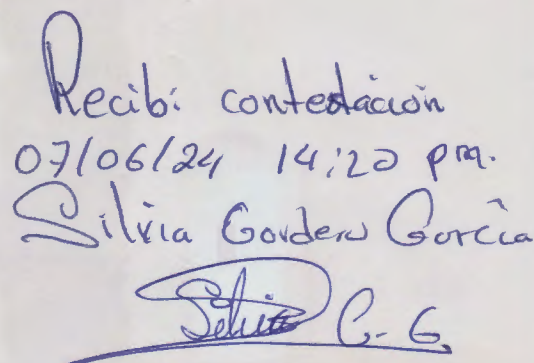 Recibí contestación
07/06/24 14:20 pm.
Silvia Cordero García
Silvia C. G.